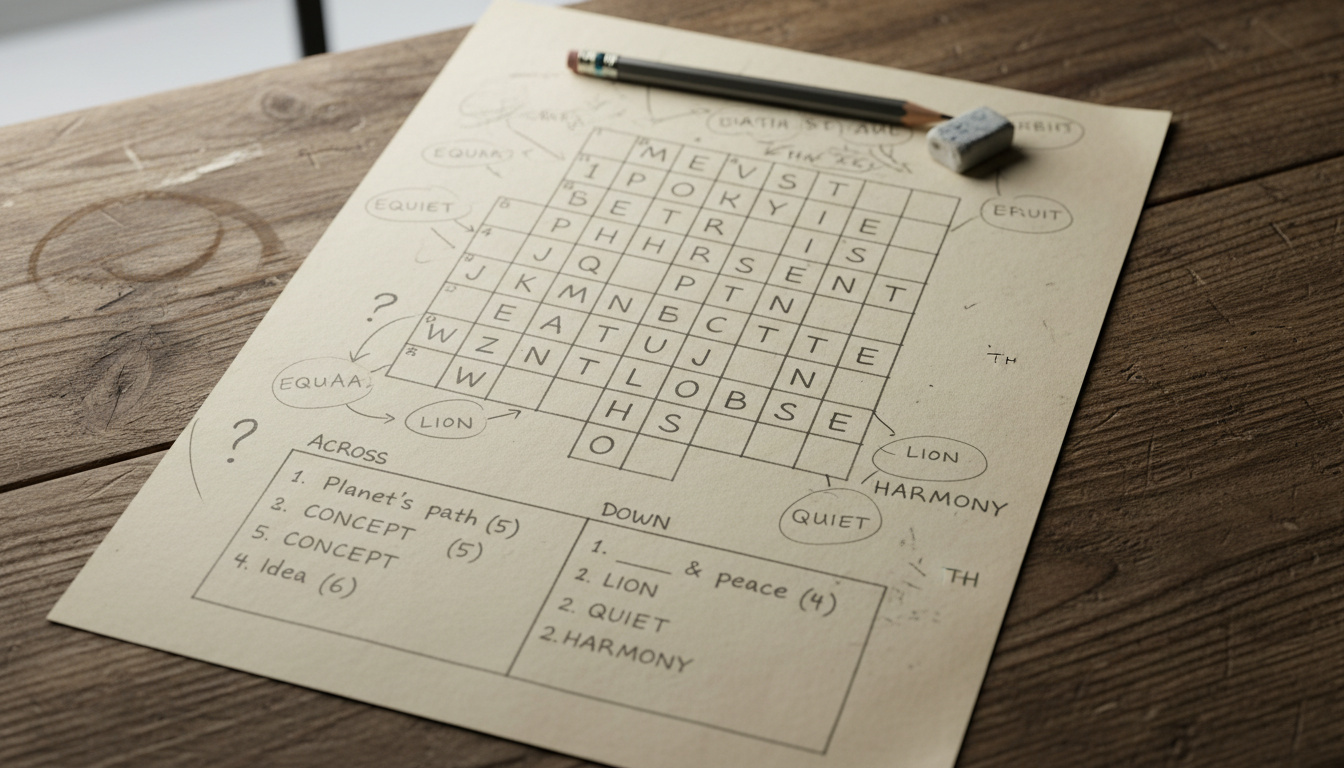 EQUAA
EQUIET
ERUIT
M E V S T
I P O K Y I E
B E T R I S
P H H R S E N T
J Q P T N
J K M N B C T T E
E A T U J N
W Z N T L O B S E
W H S
O
?
EQUAA
LION
TH
?
LION
HARMONY
QUIET
TH
ACROSS
1. Planet's path (5)
2. CONCEPT (5)
5. CONCEPT
4. Idea (6)
DOWN
1. ____ & peace (4)
2. LION
2. QUIET
2. HARMONY